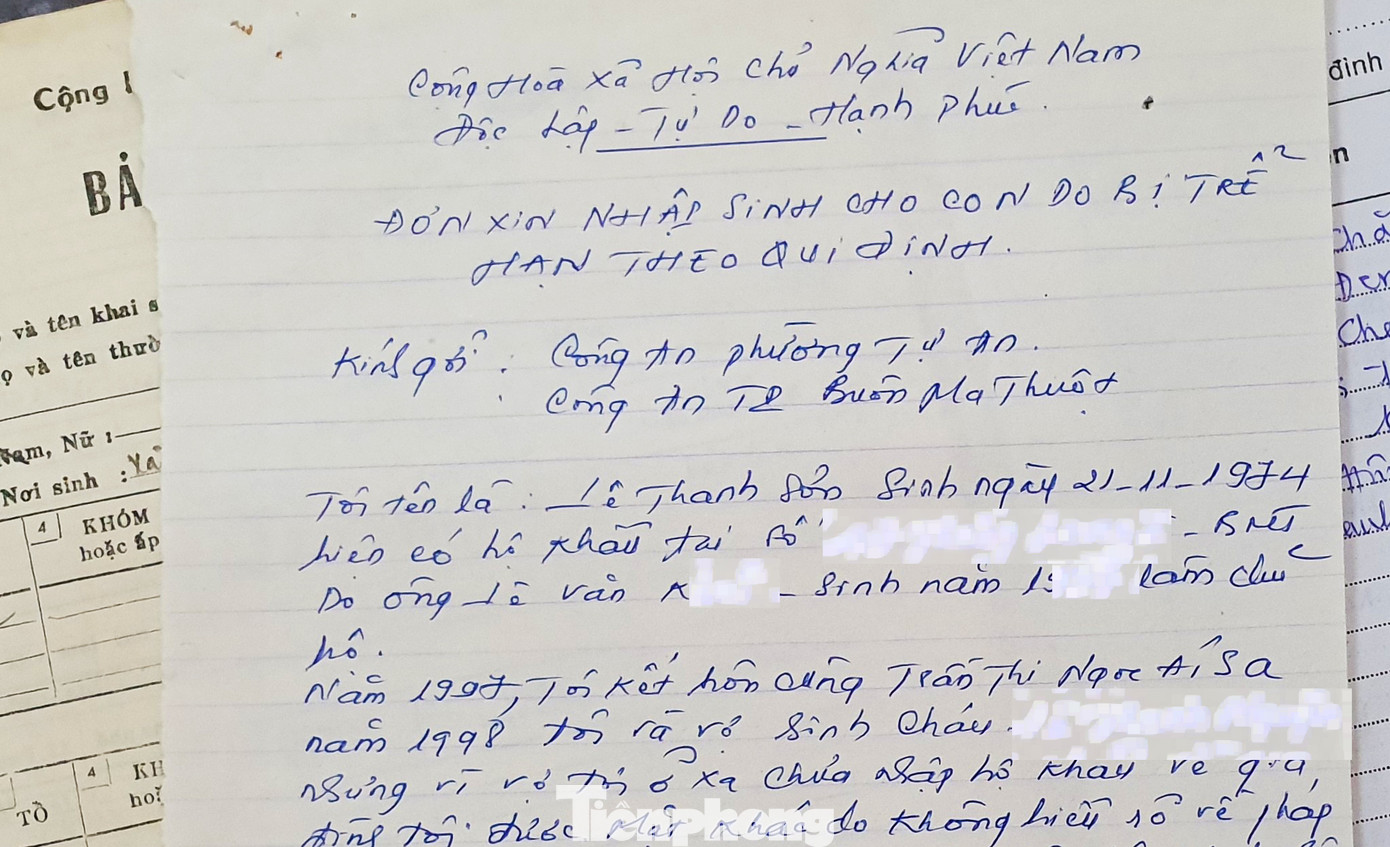 Cộng Hoà Xã Hội Chủ Nghĩa Việt Nam
Độc Lập - Tự Do - Hạnh Phúc.
ĐƠN XIN NHẬP SINH CHO CON DO BỊ TRỄ
HẠN THEO QUI ĐỊNH.
Kính gởi : Công An phường Tự An.
Công An TP Buôn Ma Thuột
Tôi tên là : Lê Thanh Sơn Sinh ngày 21-11-1974
hiện có hộ khẩu tại số - BMT
Do ông Lê Văn K - Sinh năm 19 làm chủ
hộ.
Năm 1997, Tôi kết hôn cùng Trần Thị Ngọc Ái Sa
năm 1998 tôi và vợ sinh cháu
nhưng vì vợ tôi ở xa chưa nhập hộ khẩu về
tôi được Mặt khác do không hiểu rõ về pháp
Tiền phong
Cộng
BẢ
và tên khai s
ọ và tên thườ
Nam, Nữ :
Nơi sinh :
4 KHÓM
hoặc ấp
4 KH
hoặ
TỔ
định
n